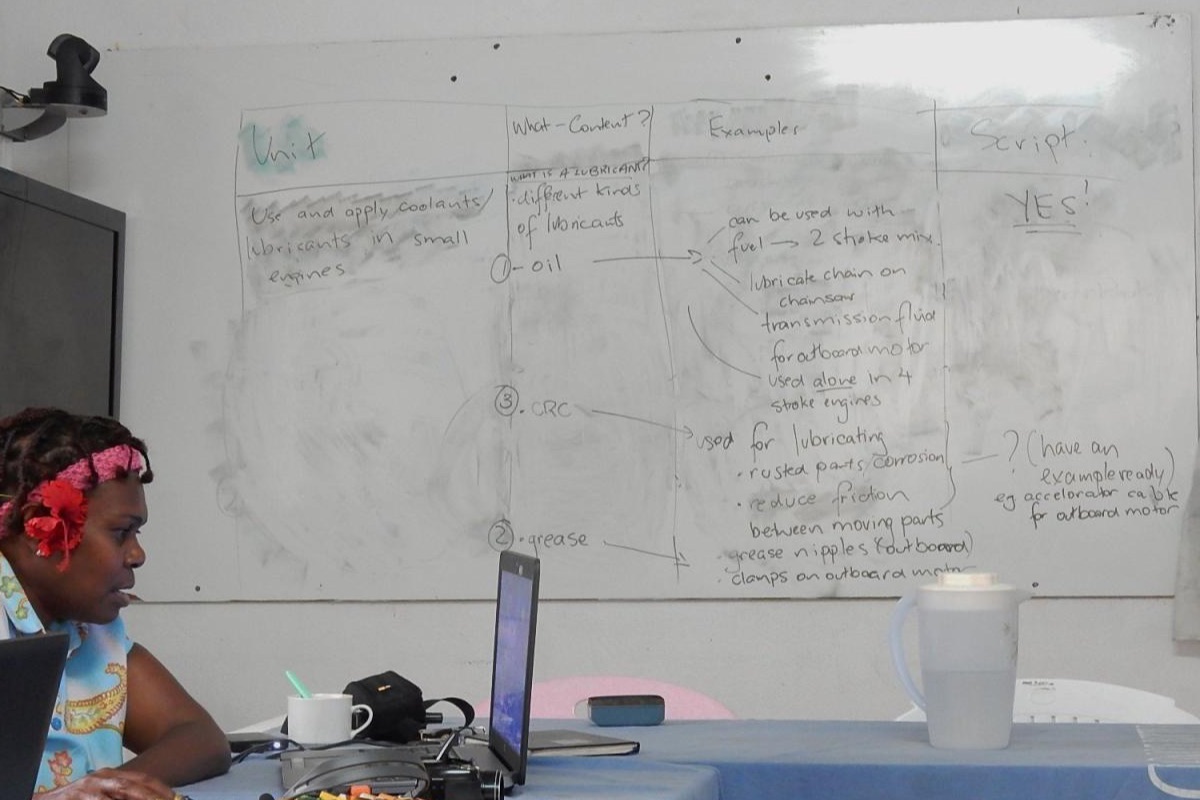 Unit
Use and apply coolants/
lubricants in small
engines
What-Content?
WHAT IS A LUBRICANT?
·different kinds
of lubricants
①-oil
③·CRC
②·grease
Examples
can be used with
fuel → 2 stroke mix.
lubricate chain on
chainsaw
transmission fluid
for outboard motor
used alone in 4
stroke engines
used for lubricating
·rusted parts/corrosion
·reduce friction
between moving parts
·grease nipples (outboard)
·clamps on outboard motor
Script.
YES!
? (have an
example ready)
eg accelorator cable
for outboard motor